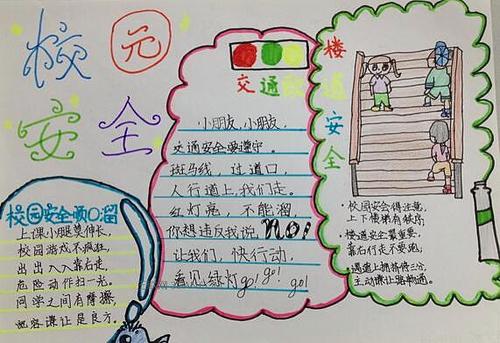 校园
安全
校园安全顺口溜
上课小腿莫伸长,
校园游戏不疯狂,
出出入入靠右走,
危险动作扫一光,
同学之间有摩擦,
宽容谦让是良方。
交通
小朋友,小朋友,
交通安全须遵守。
斑马线,过道口,
人行道上,我们走。
红灯亮,不能溜,
你想违反我说,NO!
让我们,快行动,
看见绿灯go! go! go!
楼道安全
·校园安会得注意,
上下楼梯有秩序;
·楼道安全最重要,
靠右行走不要跑;
道上拥挤得三分,
主动谦让路畅通。